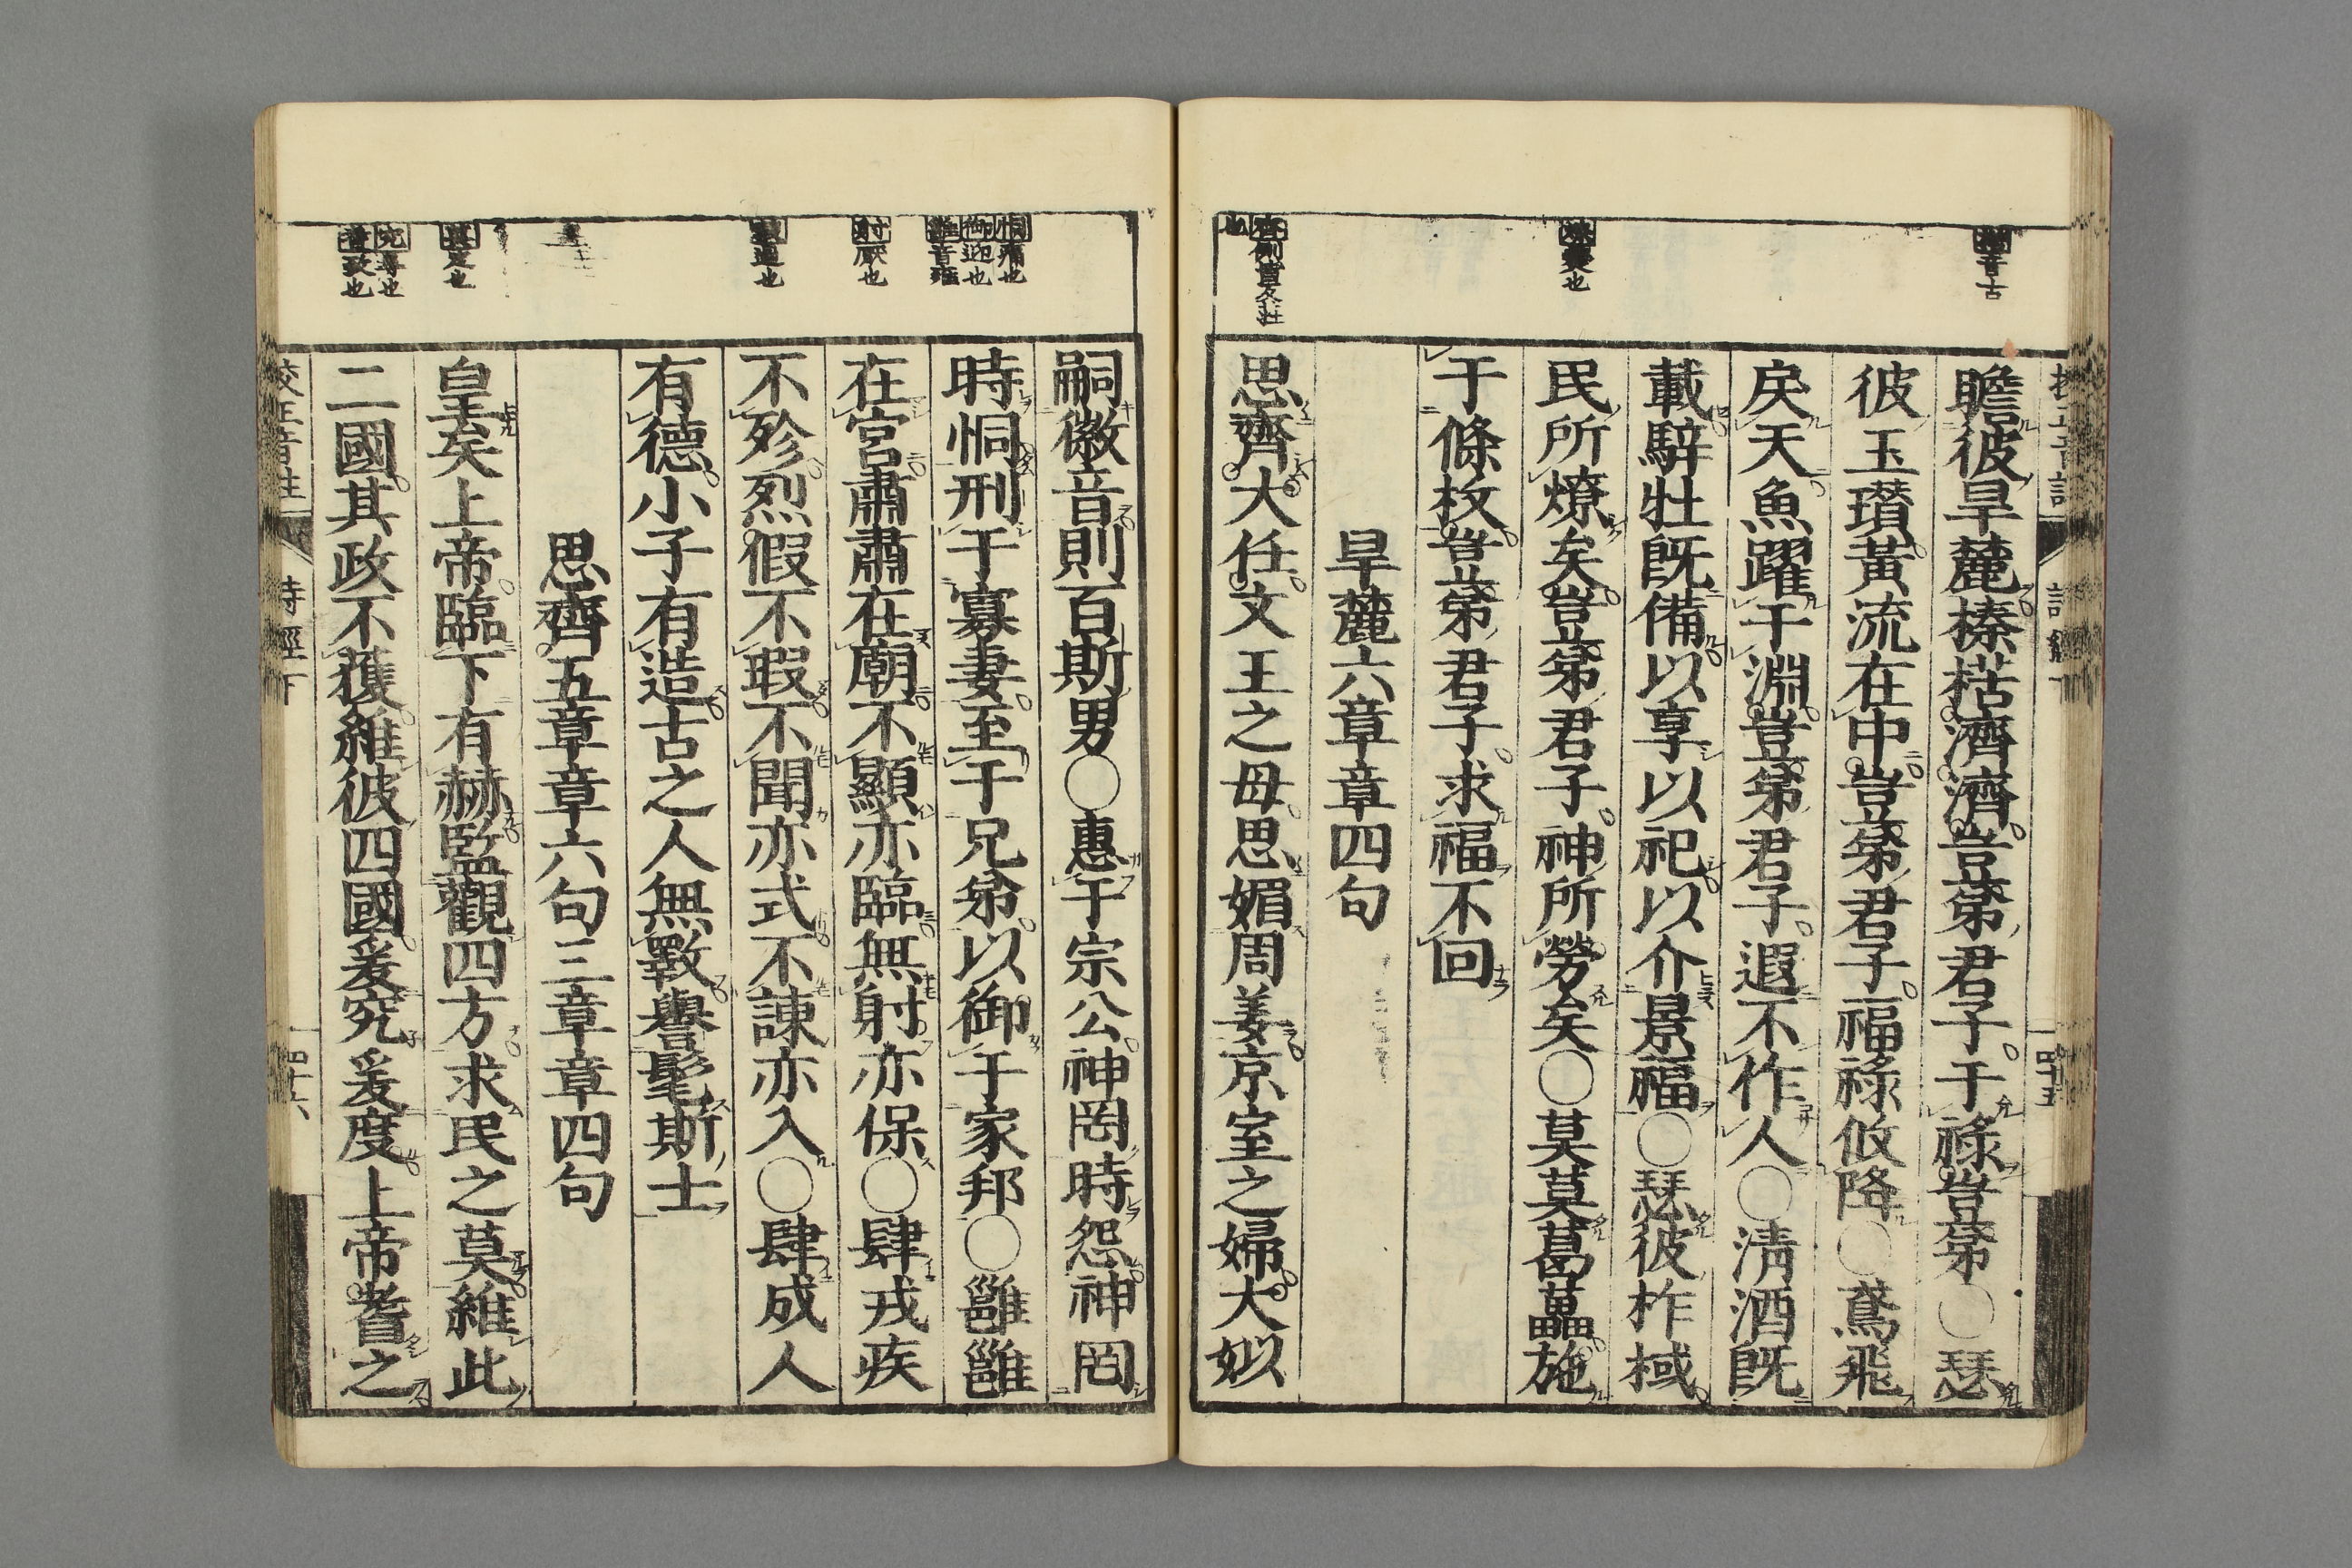 音古
燎爨也
瞻彼旱麓榛楛濟濟豈弟君子干祿豈弟○瑟
彼玉瓚黃流在中豈弟君子福祿攸降○鳶飛
戾天魚躍于淵豈弟君子遐不作人○淸酒旣
載騂牡旣備以享以祀以介景福○瑟彼柞棫
民所燎矣豈弟君子神所勞矣○莫莫葛藟施
于條枚豈弟君子求福不回
旱麓六章章四句
思齊大任文王之母思媚周姜京室之婦大姒
四十五
恫痛也
御迎也
雝音雍
射厭也
嗣徽音則百斯男○惠于宗公神罔時怨神罔
時恫刑于寡妻至于兄弟以御于家邦○雝雝
在宮肅肅在廟不顯亦臨無射亦保○肆戎疾
不殄烈假不瑕不聞亦式不諫亦入○肆成人
有德小子有造古之人無斁譽髦斯士
思齊五章章六句三章章四句
皇矣上帝臨下有赫監觀四方求民之莫維此
二國其政不獲維彼四國爰究爰度上帝耆之
校正音註
詩經下
四十六